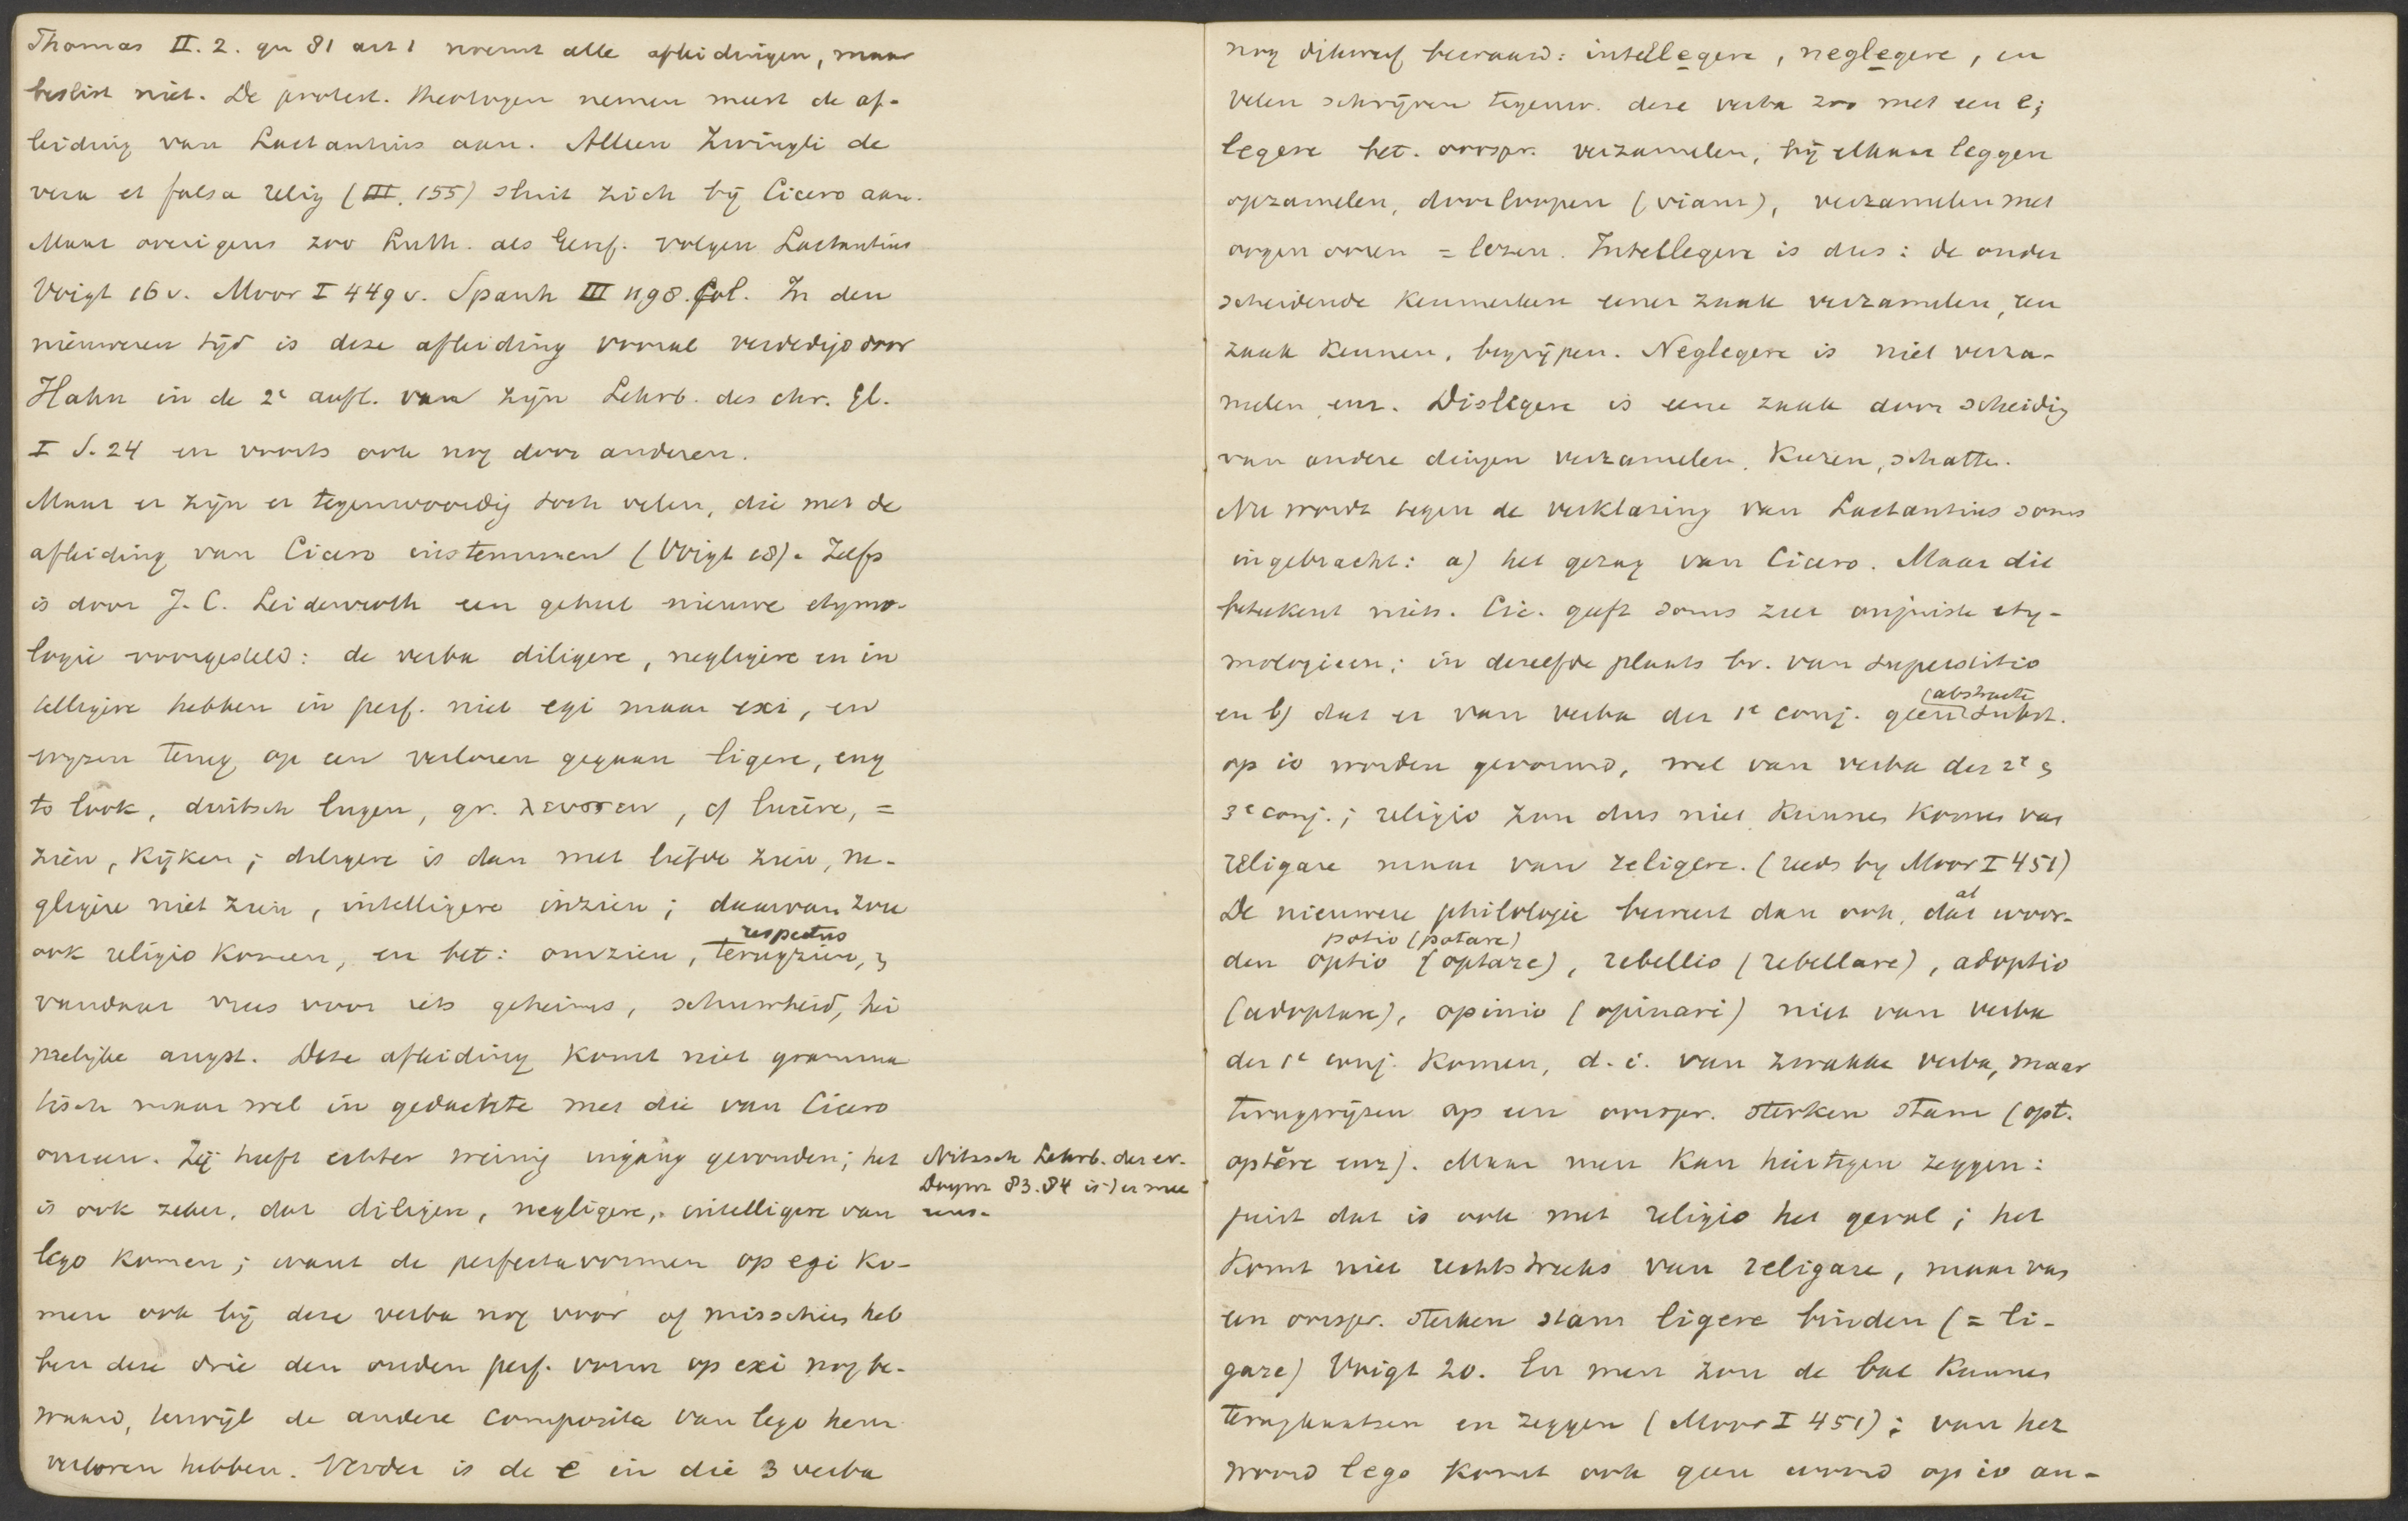 Thomas II. 2. qu 81 art 1 noemt alle afleidingen, maar
beslist niet. De protest. theologen nemen meest de af-
leiding van Lactantius aan. Alleen Zwingli de
vera et falsa relig (III, 155) sluit zich bij Cicero aan.
Maar overigens zoo Luth. als Geref. volgen Lactantius
Voigt 16 v. Moor I 449 v. Spanh III 1198. fol. In den
nieuweren tijd is deze afleiding vooral verdedigd door
Hahn in de 2e aufl. van zijn Lehrb. des chr. Gl.
I S. 24 en voorts ook nog door anderen.
Maar er zijn er tegenwoordig toch velen, die met de
afleiding van Cicero instemmen (Voigt 18). Zelfs
is door J. C. Leidenroth een geheel nieuwe etymo-
logie voorgesteld: de verba diligere, negligere en in
telligere hebben in perf. niet egi maar exi, en
wijzen terug op een verloren gegaan ligere, eng
to look, duitsch lugen, gr. λευσσειν, cf lucere, =
zien, kijken; diligere is dan met liefde zien, ne-
gligere niet zien, intelligere inzien; daarvan zou
respectus
ook religio komen, en bet: omzien, terugzien, &
vandaar vrees voor iets geheims, schuwheid, hei
melijke angst. Deze afleiding komt niet gramma
tisch maar wel in gedachte met die van Cicero
overeen. Zij heeft echter weinig ingang gevonden; het
is ook zeker, dat diligere, negligere, intelligere van
lego komen; want de perfectavormen op egi ko-
men ook bij deze verba nog voor of misschien heb
ben deze drie den ouden perf. vorm op exi nog be-
waard, terwijl de andere composita van lego hem
verloren hebben. Verder is de e in die 3 verba
Nitzsch Lehrb. der ev.
Dogm 83. 84 is er mee
eens.
nog dikwerf bewaard: intellegere, neglegere, en
velen schrijven tegenw. deze verba zoo met een e;
legere bet. oorspr. verzamelen, bij elkaar leggen
opzamelen, doorloopen (viam), verzamelen met
oogen ooren = lezen. Intellegere is dus: de onder
scheidende kenmerken eener zaak verzamelen, een
zaak kennen, begrijpen. Neglegere is niet verza-
melen enz. Dislegere is eene zaak door scheidig
van andere dingen verzamelen, kiezen, schatten.
Nu wordt tegen de verklaring van Lactantius soms
ingebracht: a) het gezag van Cicero. Maar die
beteekent niets. Cic. geeft soms zeer onjuiste ety-
mologieen; in dezelfde plaats bv. van superstitio
(abstracte
en b) dat er van verba der 1e conj. geen subst.
op io worden gevormd, wel van verba der 2e &
3e conj.; religio zou dus niet kunnen komen van
religare maar van religere. (reeds by Moor I 451)
al
De nieuwere philologie beweert dan ook, dat woor-
potio (potare)
den optio (optare), rebellio (rebellare), adoptio
(adoptare), opinio (opinari) niet van verba
der 1e conj. komen, d. i. van zwakke verba, maar
terugwijzen op een oorspr. sterken stam (opt.
optĕre enz). Maar men kan hiertegen zeggen:
juist dat is ook met religio het geval; het
komt niet rechtstreeks van religare, maar van
een oorspr. sterken stam ligere binden (= li-
gare) Voigt 20. En men zou de bal kunnen
terugkaatsen en zeggen (Moor I 451); van het
woord lego komt ook geen woord op io an-